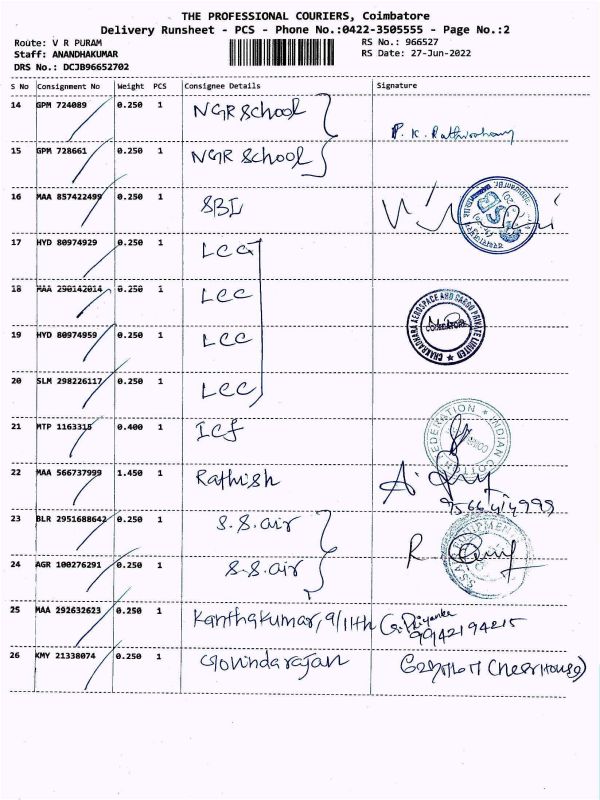 THE PROFESSIONAL COURIERS, Coimbatore
Delivery Runsheet - PCS - Phone No.:0422-3505555 - Page No.:2
Route: V R PURAM
Staff: ANANDHAKUMAR
DRS No.: DCJB96652702
RS No.: 966527
RS Date: 27-Jun-2022
S No Consignment No Weight PCS Consignee Details Signature
14 GPM 724089 0.250 1 NGR School
15 GPM 728661 0.250 1 NGR School
16 MAA 857422499 0.250 1 SBI
17 HYD 80974929 0.250 1 LCC
18 MAA 290142014 0.250 1 LCC
CHAKRADHARA AEROSPACE AND CARGO PRIVATE LIMITED
19 HYD 80974959 0.250 1 LCC
20 SLM 298226117 0.250 1 LCC
21 MTP 1163315 0.400 1 Icf
FEDERATION * INDIAN
22 MAA 566737999 1.450 1 Rathish
23 BLR 2951688642 0.250 1 S.S.air
24 AGR 100276291 0.250 1 S.S.air
25 MAA 292632623 0.250 1 Kanthakumar, 9/11th G. Priyanka
9942194215
26 KMY 21338074 0.250 1 Govindarajan